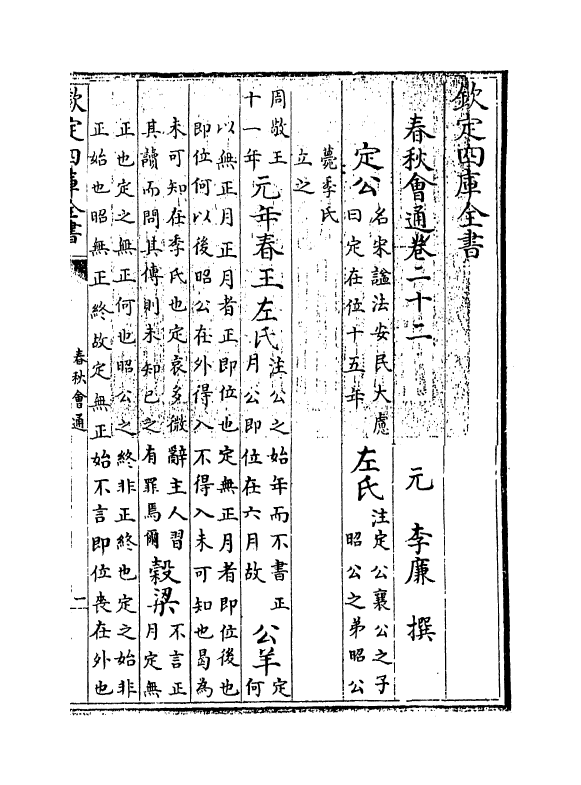 欽定四庫全書
春秋會通卷二十二　元　李廉　撰
定公　名宋謚法安民大慮
曰定在位十五年
左氏　注定公襄公之子
昭公之弟昭公
薨季氏
立之
周敬王
十一年
元年春王　左氏　注公之始年而不書正
月公即位在六月故
公羊　定
何
以無正月正月者正即位也定無正月者即位後也
即位何以後昭公在外得入不得入未可知也曷為
未可知在季氏也定哀多微辭主人習
其讀而問其傳則未知已之有罪焉爾
穀梁　不言正
月定無
正也定之無正何也昭公之終非正終也定之始非
正始也昭無正終故定無正始不言即位喪在外也
欽定四庫全書
春秋會通